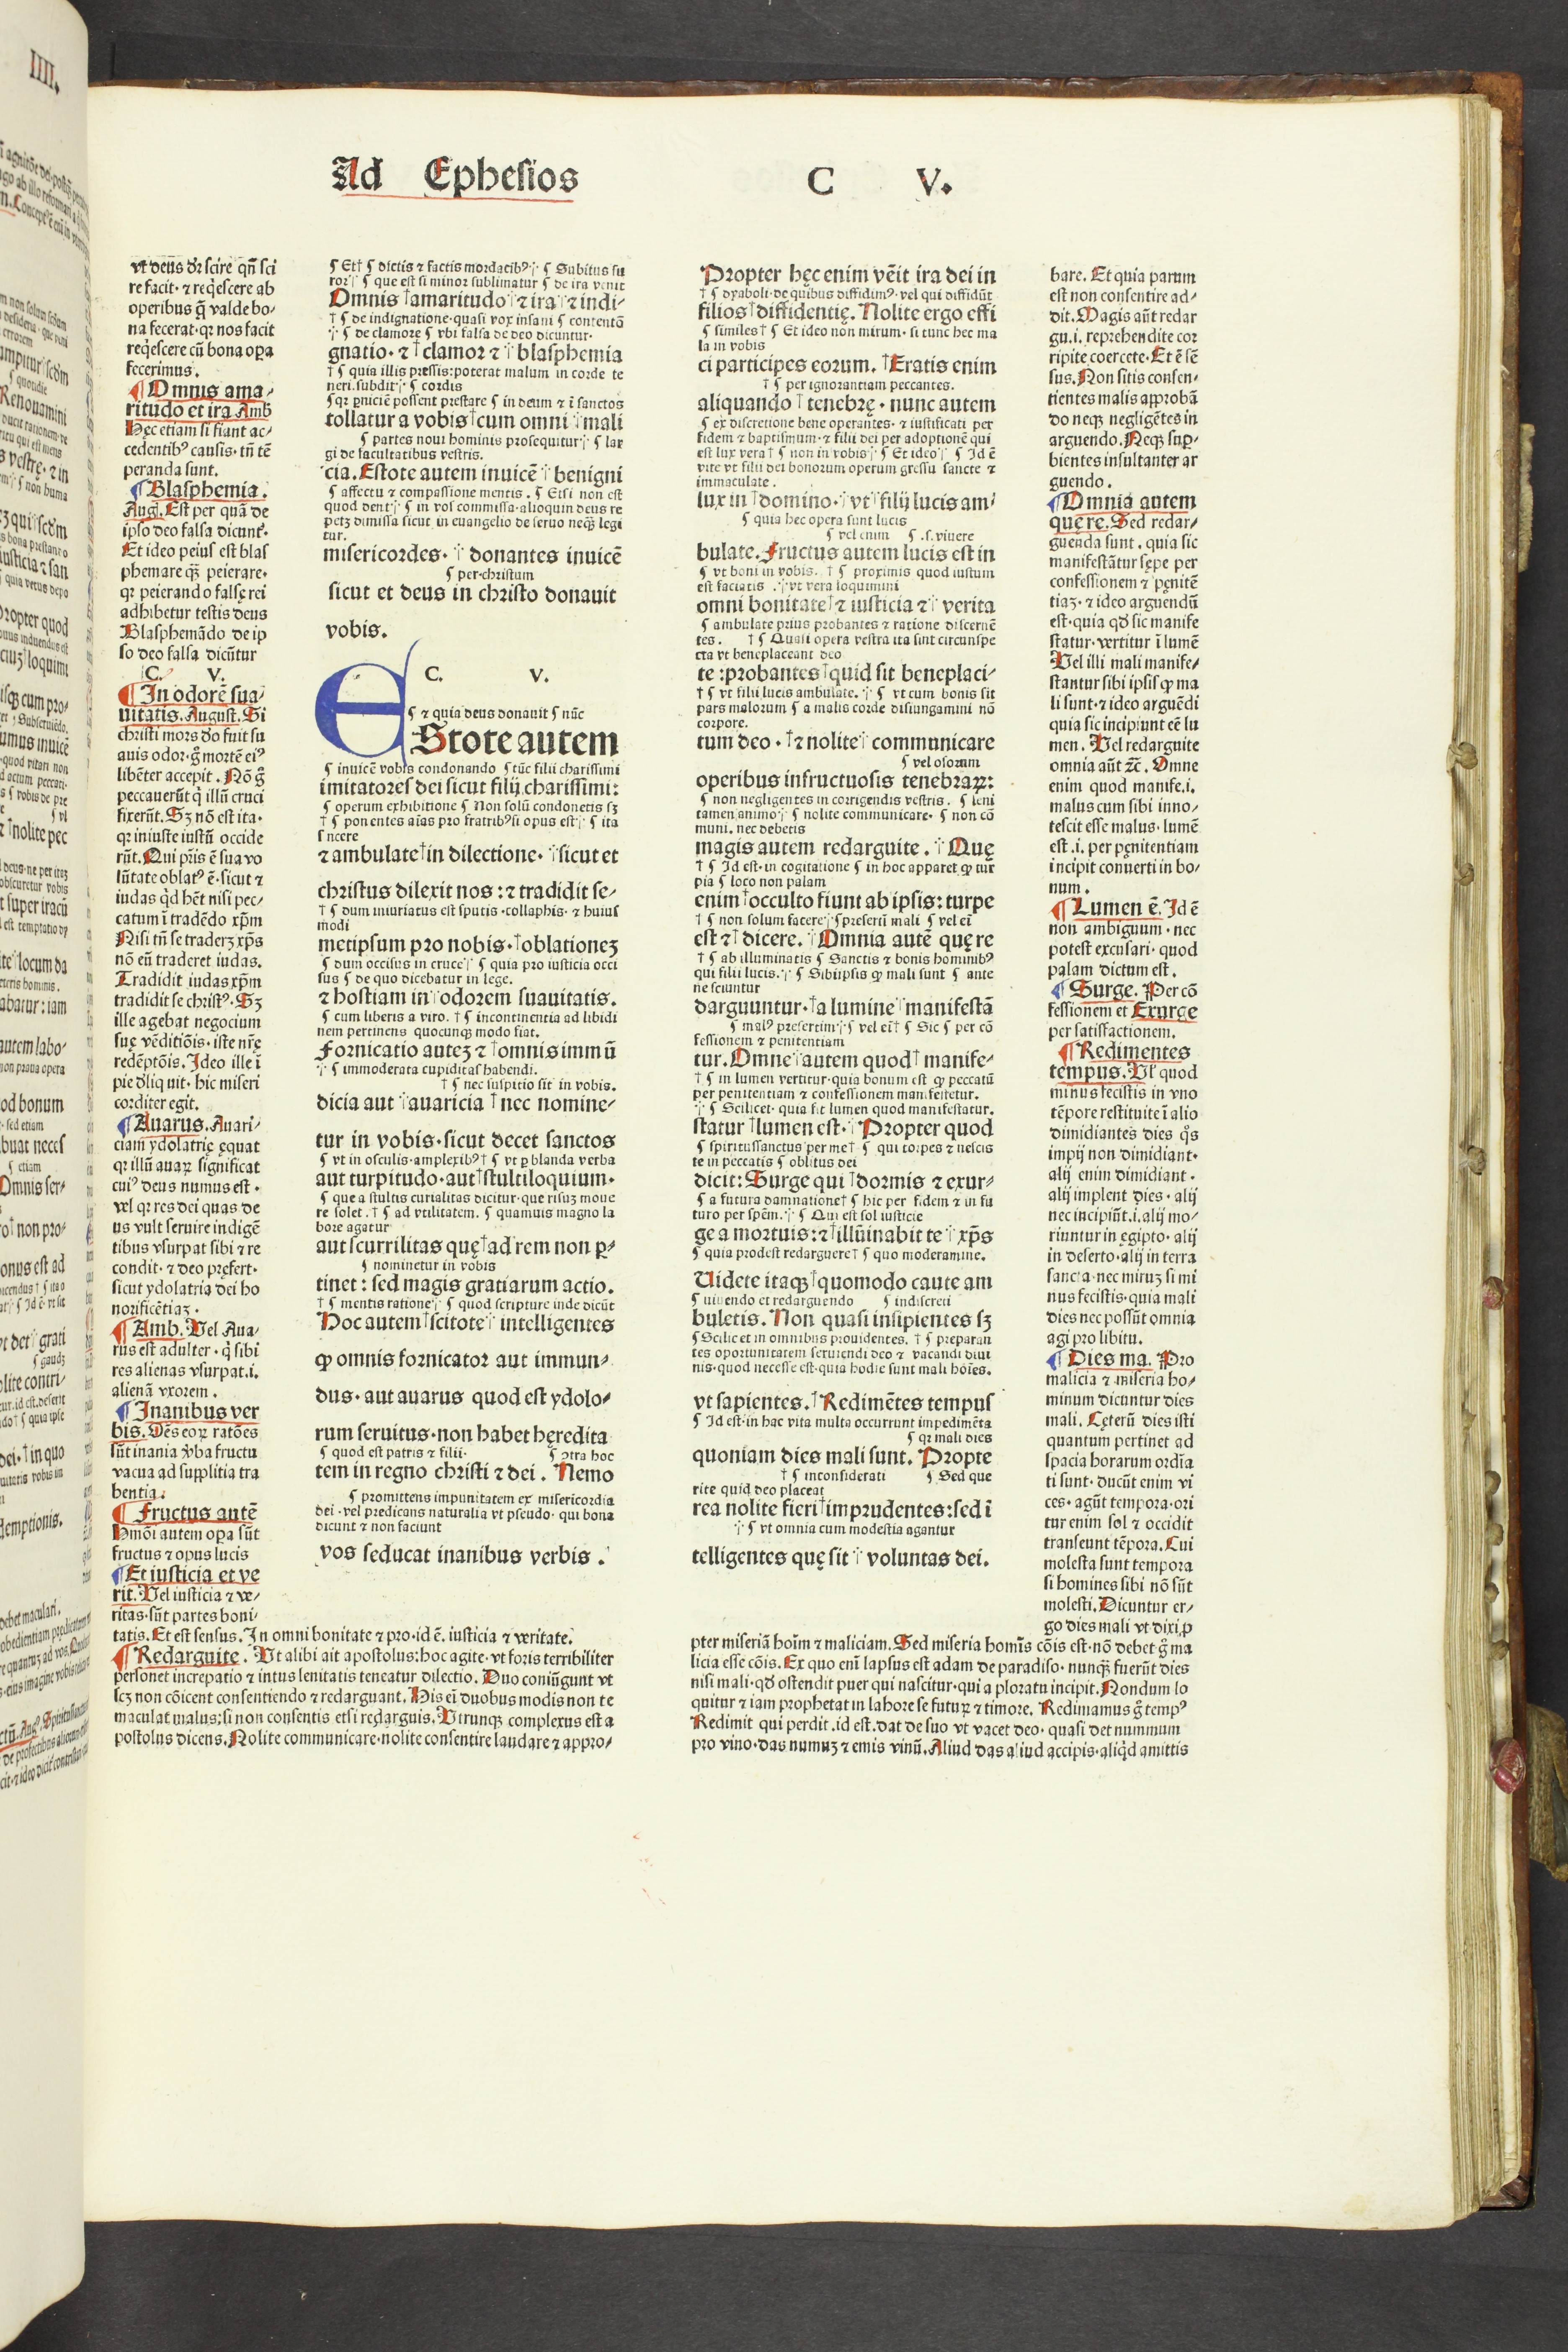 Ad Ephesios C V.
vt deus dr̄ scire qn̄ sci
re facit· ⁊ reqͥescere ab
operibus q̄ valde bo-
na fecerat·qꝛ nos facit
reqͥescere cū bona oꝑa
fecerimus.
¶ Omnis ama/
ritudo et ira Amb
Hęc etiam si fiant ac/
cedentibꝰ causis· tn̄ tē
peranda sunt.
¶ Blasphemia.
Augͣ. Est per quā de
ipso deo falsa dicunt᷑.
Et ideo peius est blas
phemare qͣꝫ peierare·
qꝛ peierando falsę rei
adhibetur testis deus
Blasphemādo de ip
so deo falsa dicūtur
C. V.
¶ In odorē sua/
uitatis. August. Si
christi mors dͦo fuit su
auis odor· gͦ mortē eiꝰ
libēter accepit. Nō gͦ
peccauerūt qͥ illū cruci
fixerūt. Sꝫ nō est ita·
qꝛ iniuste iustū occide
rūt. Qui pr̄is ē sua vo
lūtate oblatꝰ ē·sicut ⁊
iudas qͥd hēt nisi pec/
catum ī tradēdo xp̄m
Nisi tn̄ se traderꝫ xp̄s
nō eū traderet iudas.
Tradidit iudas xp̄m
tradidit se christꝰ· Sꝫ
ille agebat negocium
suę vēditiōis· iste nr̄ę
redēptōis. Ideo ille ī
pie dͤliquit· hic miseri
corditer egit.
¶ Auarus. Auari/
ciam ydolatrię ęquat
qꝛ illū auaꝝ significat
cuiꝰ deus numus est·
vel qꝛ res dei quas de
us vult seruire indigē
tibus vsurpat sibi ⁊ re
condit· ⁊ deo pręfert·
sicut ydolatria dei ho
norificētiaꝫ·
¶ Amb. Vel Aua/
rus est adulter· qͥ sibi
res alienas vsurpat.i.
alienā vxorem.
¶ Inanibus ver
bis. Oēs eoꝝ ratōes
sūt inania ꝟba fructu
vacua ad supplitia tra
hentia.
¶ Fructus autē
Hmōi autem oꝑa sūt
fructus ⁊ opus lucis
¶ Et iusticia et ve
rit. Vel iusticia ⁊ ve/
ritas·sūt partes boni/
tatis. Et est sensus. In omni bonitate ⁊ pro·id ē. iusticia ⁊ veritate.
¶ Redarguite. Vt alibi ait apostolus:hoc agite· vt foris terribiliter
personet increpatio ⁊ intus lenitatis teneatur dilectio. Duo coniūgunt vt
scꝫ non cōicent consentiendo ⁊ redarguant. His eī duobus modis non te
maculat malus:si non consentis etsi redarguis. Vtrunqꝫ complexus est a
postolus dicens. Nolite communicare·nolite consentire laudare ⁊ appro/
¶ Et† ¶ dictis ⁊ factis mordacibꝰ ¶ Subitus fu
ror ¶ que est si minor sublimatur ¶ de ira venit
Omnis †amaritudo ⁊ ira ⁊ indi-
† ¶ de indignatione·quasi vox insani ¶ contentō
¶ de clamore ¶ vbi falsa de deo dicuntur·
gnatio· ⁊ †clamor ⁊ blasphemia
† ¶ quia illis pressis:poterat malum in corde te
neri.subdit ¶ cordis
¶ qꝛ ꝑniciē possent prestare ¶ in deum ⁊ ī sanctos
tollatur a vobis †cum omni mali
¶ partes noui hominis prosequitur ¶ lar
gi de facultatibus vestris.
cia. Estote autem inuicē benigni
¶ affectu ⁊ compassione mentis. ¶ Etsi non est
quod dent ¶ in vos commissa·alioquin deus re
petꝫ dimissa sicut in euangelio de seruo neqͣꝫ legi
tur.
misericordes· donantes inuicē
¶ per·christum
sicut et deus in christo donauit
vobis.
C. V.
¶ ⁊ quia deus donauit ¶ nūc
EStote autem
¶ inuicē vobis condonando ¶ tūc filii charissimi
imitatores dei sicut filij charissimi:
¶ operum exhibitione ¶ Non solū condonetis sꝫ
† ¶ ponentes aīas pro fratribꝰ si opus est ¶ ita
sincere
⁊ ambulate †in dilectione· sicut et
christus dilexit nos: ⁊ tradidit se/
† ¶ dum iniuriatus est sputis·collaphis· ⁊ huius
modi
metipsum pro nobis· †oblationeꝫ
¶ dum occisus in cruce ¶ quia pro iusticia occi
sus ¶ de quo dicebatur in lege.
⁊ hostiam in odorem suauitatis.
¶ cum liberis a viro. † ¶ incontinentia ad libidi
nem pertinens quocunqꝫ modo fiat.
Fornicatio auteꝫ ⁊ †omnis immū
¶ immoderata cupiditas habendi.
† ¶ nec suspitio sit in vobis.
dicia aut auaricia †nec nomine/
tur in vobis·sicut decet sanctos
¶ vt in osculis·amplexibꝰ† ¶ vt ꝑ blanda verba
aut turpitudo·aut †stultiloquium·
¶ que a stultis curialitas dicitur·que risuꝫ moue
re solet. † ¶ ad vtilitatem. ¶ quamuis magno la
bore agatur
aut scurrilitas quę †ad rem non ꝑ-
¶ nominetur in vobis
tinet: sed magis gratiarum actio.
† ¶ mentis ratione ¶ quod scripture inde dicūt
Hoc autem †scitote intelligentes
ꝙ omnis fornicator aut immun/
dus· aut auarus quod est ydolo/
rum seruitus·non habet hęredita
¶ quod est patris ⁊ filii· ¶ ꝯtra hoc
tem in regno christi ⁊ dei. Nemo
¶ promittens impunitatem ex misericordia
dei·vel predicans naturalia vt pseudo· qui bona
dicunt ⁊ non faciunt
vos seducat inanibus verbis.
Propter hęc enim vēit ira dei in
† ¶ dyaboli·de quibus diffidimꝰ·vel qui diffidūt
filios †diffidentię. Nolite ergo effi
¶ similes† ¶ Et ideo non mirum· si tunc hec ma
la in vobis
ci participes eorum. †Eratis enim
† ¶ per ignorantiam peccantes.
aliquando † tenebrę· nunc autem
¶ ex discretione bene operantes· ⁊ iustificati per
fidem ⁊ baptismum· ⁊ filii dei per adoptionē qui
est lux vera† ¶ non in vobis ¶ Et ideo ¶ Id ē
vite vt filii dei bonorum operum gressu sancte ⁊
immaculate.
lux in †domino· vt filij lucis am/
¶ quia hec opera sunt lucis
¶ vel enim ¶ .s. viuere
bulate. Fructus autem lucis est in
¶ vt boni in vobis. † ¶ proximis quod iustum
est faciatis. vt vera loquimini
omni bonitate †⁊ iusticia ⁊ verita
¶ ambulate prius probantes ⁊ ratione discernē
tes. † ¶ Quasi opera vestra ita sint circunspe
cta vt beneplaceant deo
te :probantes †quid sit beneplaci/
† ¶ vt filii lucis ambulate. ¶ vt cum bonis sit
pars malorum ¶ a malis corde disiungamini nō
corpore.
tum deo· †⁊ nolite communicare
¶ vel osorum
operibus infructuosis tenebraꝝ:
¶ non negligentes in corrigendis vestris. ¶ leni
tamen animo ¶ nolite communicare· ¶ non cō
muni. nec debetis
magis autem redarguite. Quę
† ¶ Id est· in cogitatione ¶ in hoc apparet ꝙ tur
pia ¶ loco non palam
enim †occulto fiunt ab ipsis: turpe
† ¶ non solum facere ¶ presertū mali ¶ vel eī
est ⁊ dicere. Omnia autē quę re
† ¶ ab illuminatis ¶ Sanctis ⁊ bonis hominibꝰ
qui filii lucis. ¶ Sibiipsis ꝙ mali sunt ¶ ante
ne sciuntur
darguuntur· †a lumine manifestā
¶ malꝰ presertim ¶ vel eī† ¶ Sic ¶ per cō
fessionem ⁊ penitentiam
tur. Omne autem quod† manife/
† ¶ in lumen vertitur·quia bonum est ꝙ peccatū
per penitentiam ⁊ confessionem manifestetur.
¶ Scilicet· quia fit lumen quod manifestatur.
statur †lumen est· Propter quod
¶ spiritussanctus per me† ¶ qui torpes ⁊ nescis
te in peccatis ¶ oblitus dei
dicit: Surge qui †dormis ⁊ exur/
¶ a futura damnatione† ¶ hic per fidem ⁊ in fu
turo per spēm. ¶ Qui est sol iusticie
ge a mortuis: ⁊ †illūinabit te xp̄s
¶ quia prodest redarguere† ¶ quo moderamine.
Uidete itaqꝫ †quomodo caute am
¶ uiuendo et redarguendo ¶ indiscreti
buletis. Non quasi insipientes sꝫ
¶ Scilicet in omnibus prouidentes. † ¶ preparan
tes oportunitatem seruiendi deo ⁊ vacandi diui
nis·quod necesse est·quia hodie sunt mali hoīes.
vt sapientes. †Redimētes tempus
¶ Id est·in hac vita multa occurrunt impedimēta
¶ qꝛ mali dies
quoniam dies mali sunt. Propte
† ¶ inconsiderati ¶ Sed que
rite quid deo placeat
rea nolite fieri †imprudentes:sed ī
¶ vt omnia cum modestia agantur
telligentes quę sit voluntas dei.
bare. Et quia parum
est non consentire ad-
dit. Magis aūt redar
gu.i. reprehendite cor
ripite coercete· Et ē sē
sus. Non sitis consen-
tientes malis approbā
do neqꝫ negligētes in
arguendo. Neqꝫ suꝑ-
bientes insultanter ar
guendo.
¶ Omnia autem
que re. Sed redar/
guenda sunt. quia sic
manifestātur sępe per
confessionem ⁊ pęnitē
tiaꝫ· ⁊ ideo arguendū
est·quia qd̄ sic manife
statur·vertitur ī lumē
Vel illi mali manife/
stantur sibi ipsis ꝙ ma
li sunt· ⁊ ideo arguēdi
quia sic incipiunt eē lu
men. Vel redarguite
omnia aūt ⁊c̄. Omne
enim quod manife.i.
malus cum sibi inno/
tescit esse malus·lumē
est.i. per pęnitentiam
incipit conuerti in bo/
num.
¶ Lumen ē. Id ē
non ambiguum· nec
potest excusari· quod
palam dictum est.
¶ Surge. Per cō
fessionem et Exurge
per satisfactionem.
¶ Redimentes
tempus. Vl̄ quod
minus fecistis in vno
tēpore restituite ī alio
dimidiantes dies qͦs
impij non dimidiant·
alij enim dimidiant·
alij implent dies· alij
nec incipiūt.i.alij mo/
riuntur in ęgipto· alij
in deserto·alij in terra
sancta·nec miruꝫ si mi
nus fecistis·quia mali
dies nec possūt omnia
agi pro libitu.
¶ Dies ma. Pro
malicia ⁊ miseria ho/
minum dicuntur dies
mali. Cęterū dies isti
quantum pertinet ad
spacia horarum ordīa
ti sunt· ducūt enim vi
ces· agūt tempora·ori
tur enim sol ⁊ occidit
transeunt tēpora. Cui
molesta sunt tempora
si homines sibi nō sūt
molesti. Dicuntur er/
go dies mali vt dixi·ꝓ
pter miseriā hoīm ⁊ maliciam. Sed miseria homīs cōis est·nō debet gͦ ma
licia esse cōis. Ex quo enī lapsus est adam de paradiso· nunqͣꝫ fuerūt dies
nisi mali·qd̄ ostendit puer qui nascitur·qui a ploratu incipit. Nondum lo
quitur ⁊ iam prophetat in labore se futuꝝ ⁊ timore. Redimamus gͦ tempꝰ
Redimit qui perdit.id est.dat de suo vt vacet deo· quasi det nummum
pro vino·das numuꝫ ⁊ emis vinū. Aliud das aliud accipis·aliqͥd amittis